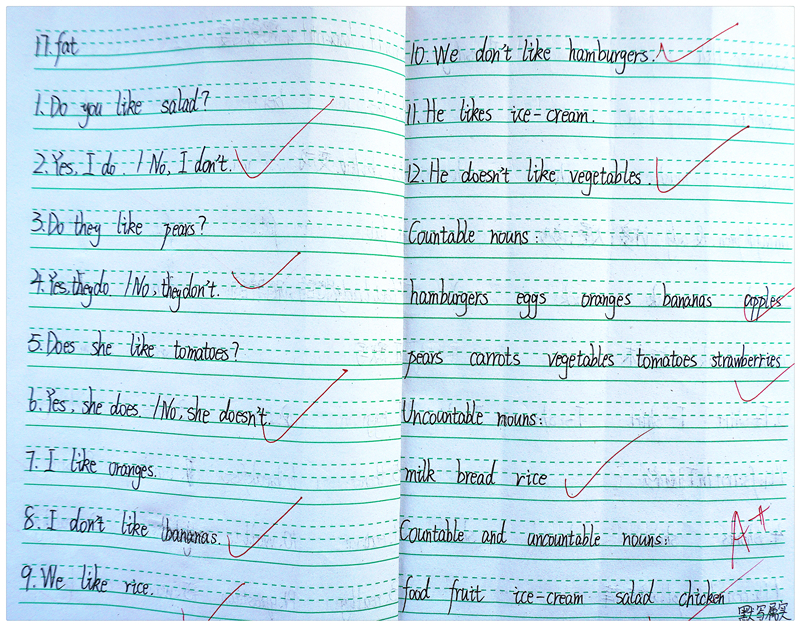 17. fat
1. Do you like salad?
2. Yes, I do. / No, I don't.
3. Do they like pears?
4. Yes, they do / No, they don't.
5. Does she like tomatoes?
6. Yes, she does. / No, she doesn't.
7. I like oranges.
8. I don't like bananas.
9. We like rice.
10. We don't like hamburgers.
11. He likes ice-cream.
12. He doesn't like vegetables.
Countable nouns:
hamburgers eggs oranges bananas apples
pears carrots vegetables tomatoes strawberries
Uncountable nouns:
milk bread rice
A+
Countable and uncountable nouns:
food fruit ice-cream salad chicken